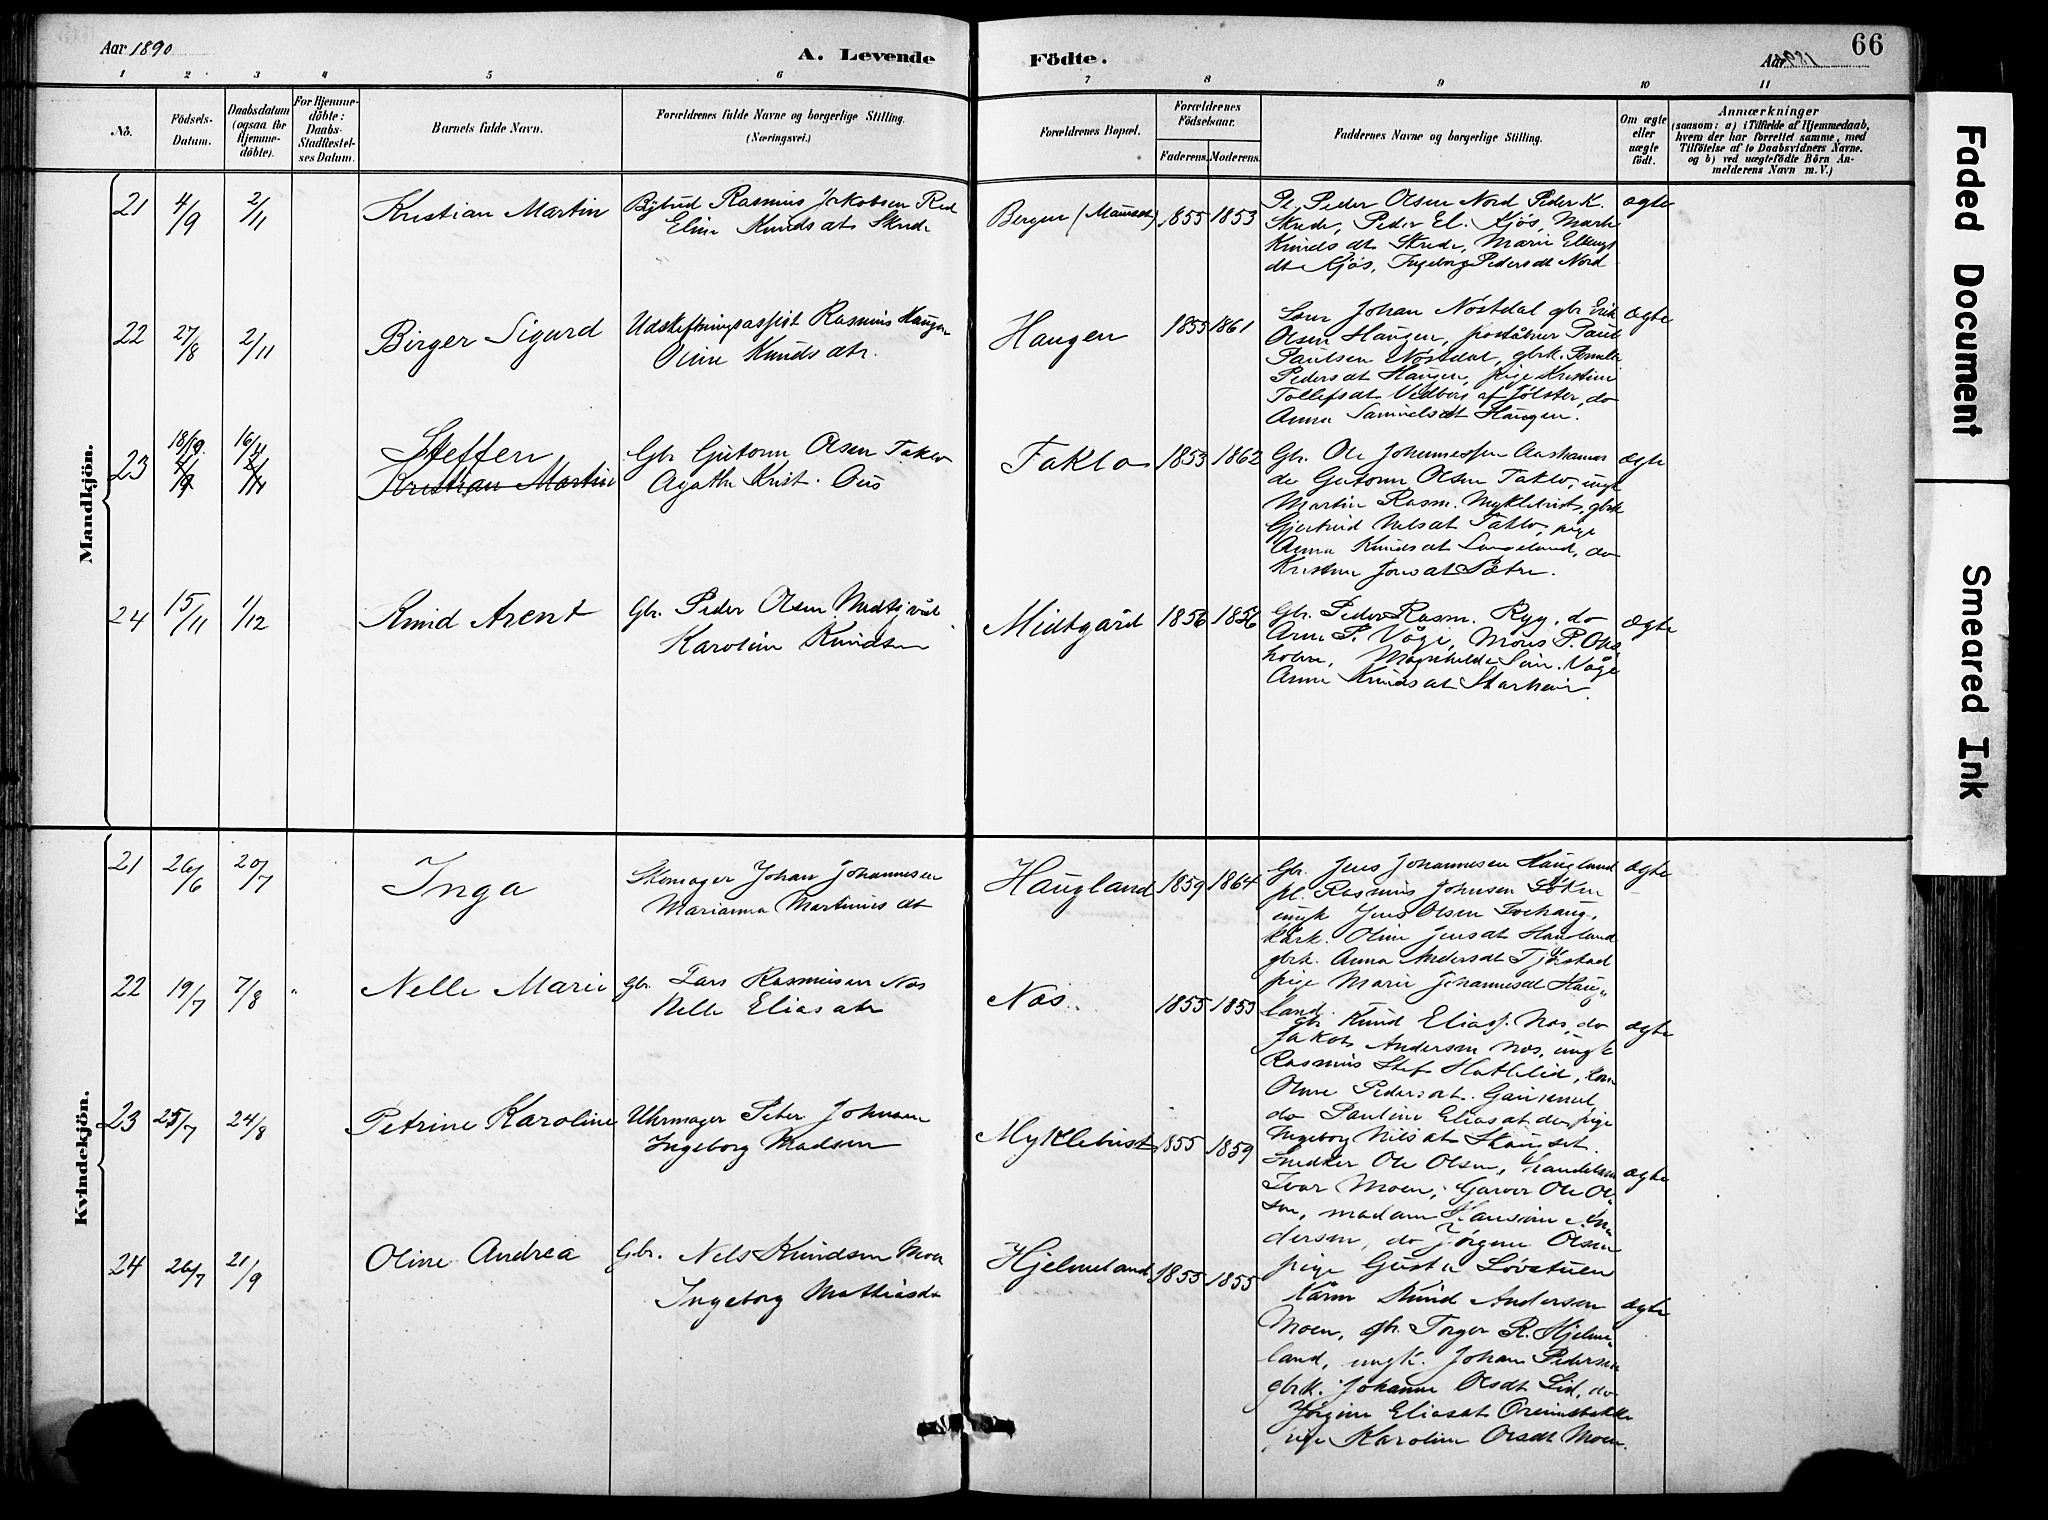 Aar 1890
A. Levende Födte.
Aar 1891
66
1 2 3 4 5 6 7 8 9 10 11
No.
Födsels-Datum.
Daabsdatum (ogsaa for Hjemme-döbte).
For Hjemme-döbte: Daabs-Stadfæstel-ses Datum.
Barnets fulde Navn.
Forældrenes fulde Navne og borgerlige Stilling. (Næringsvei.)
Forældrenes Bopæl.
Forældrenes Födselsaar.
Faderens. Moderens.
Faddernes Navne og borgerlige Stilling.
Om ægte eller uægte födt.
Anmærkninger
(saasom: a) i Tilfælde af Hjemmedaab, hvem der har forrettet samme, med Tilföielse af to Daabsvidners Navne. og b) ved uægtefödte Börn An-melderens Navn m. V.)
Mandkjön.
21 4/9 2/11 Kristian Martin
Rasmus Jakobsen Red
Eline Knudsdt Skrede
Bergen (Maurset) 1855 1853
Peder Olsen Nord Peder K.
Skrede, Peder El. Kjös, Marte
Knudsdt Skrede, Marie
dt Kjös, Ingeborg Pedersdt Nord
ægte
22 27/8 2/11 Birger Sigurd
Udskiftningsassist Rasmus Haugen
Oline Knudsdtr.
Haugen 1855 1861
Johan Nöstdal gbr Erik
Olsen Haugen, postaabner Paul
Paulsen Nöstdal, gbrk.
Pedersdt Haugen, pige Kristine
Tollefsdt af Jölster, do
Anna Samuelsdt Haugen.
ægte
23 18/9 16/11 Steffen
4/9 2/11 Kristian Martin
Gbr Guttorm Olsen Taklo
Agathe Krist. Ous
Taklo 1853 1862
Gbr. Ole Johannessen Aarhamar
do Guttorm Olsen Taklo, ungk
Martin Rasm. Myklebust, gbrk
Gjertrud Nelsdt Taklo, pige
Anna Knudsdt Langeland, do
Kristine Jonsdt Sætre.
ægte
24 15/11 1/12 Knud Arent
Gbr. Peder Olsen
Karoline Knudsen
Midtgård 1856 1856
Gbr. Peder Rasm. Ryg, do
Arne P. Våge, Mons P.
holm, Våge
Anne Knudsdt Starheim.
ægte
Kvindekjön.
21 26/6 20/7 Inga
Skomager Johan Johannesen
Marianna Martinusdt
Haugland 1859 1864
Gbr. Jens Johannesen Haugland
pl. Rasmus Johnsen
ungk Jens Olsen
Oline Jensdt Haugland
gbrk. Anna Andersdt Tjörstad
pige Marie Johannesdt Haug
land.
ægte
22 19/7 7/8 " Nelle Marie
gbr. Lars Rasmusen Nos
Nelle Eliasdtr
Nos. 1855 1853
gbr Knud Eliass. Nos, do
Jakob Andersen Nos, ungk
Rasmus Stef Hatlelid,
Oline Pedersdt. Gausemel
do Pauline Eliasdt do, pige
Ingeborg Nilsdt Skaugset.
ægte
23 25/7 24/8 Petrine Karoline
Uhrmager Peter Johnsen
Ingeborg Madsen
Myklebust 1855 1859
Snedker Ole Olsen, Handelsm
Ivar Moen, Garver Ole Ol
sen, madam Hansine An
dersen, do Jörgine Olsen
pige Gusta Lövstuen
ægte
24 26/7 21/9 Oline Andrea
Gbr. Nels Knudsen Moen
Ingeborg Mathiasdt
Hjelmeland 1855 1855
Kårm Knud Andersen
Moen, gbr. Torger R. Hjelme
land, ungk. Johan Pedersen
gbrk. Johanne Olsdt Lid, do
Jörgine Eliasdt
pige Karoline Olsdt Moen.
ægte
Faded Document
Smeared Ink